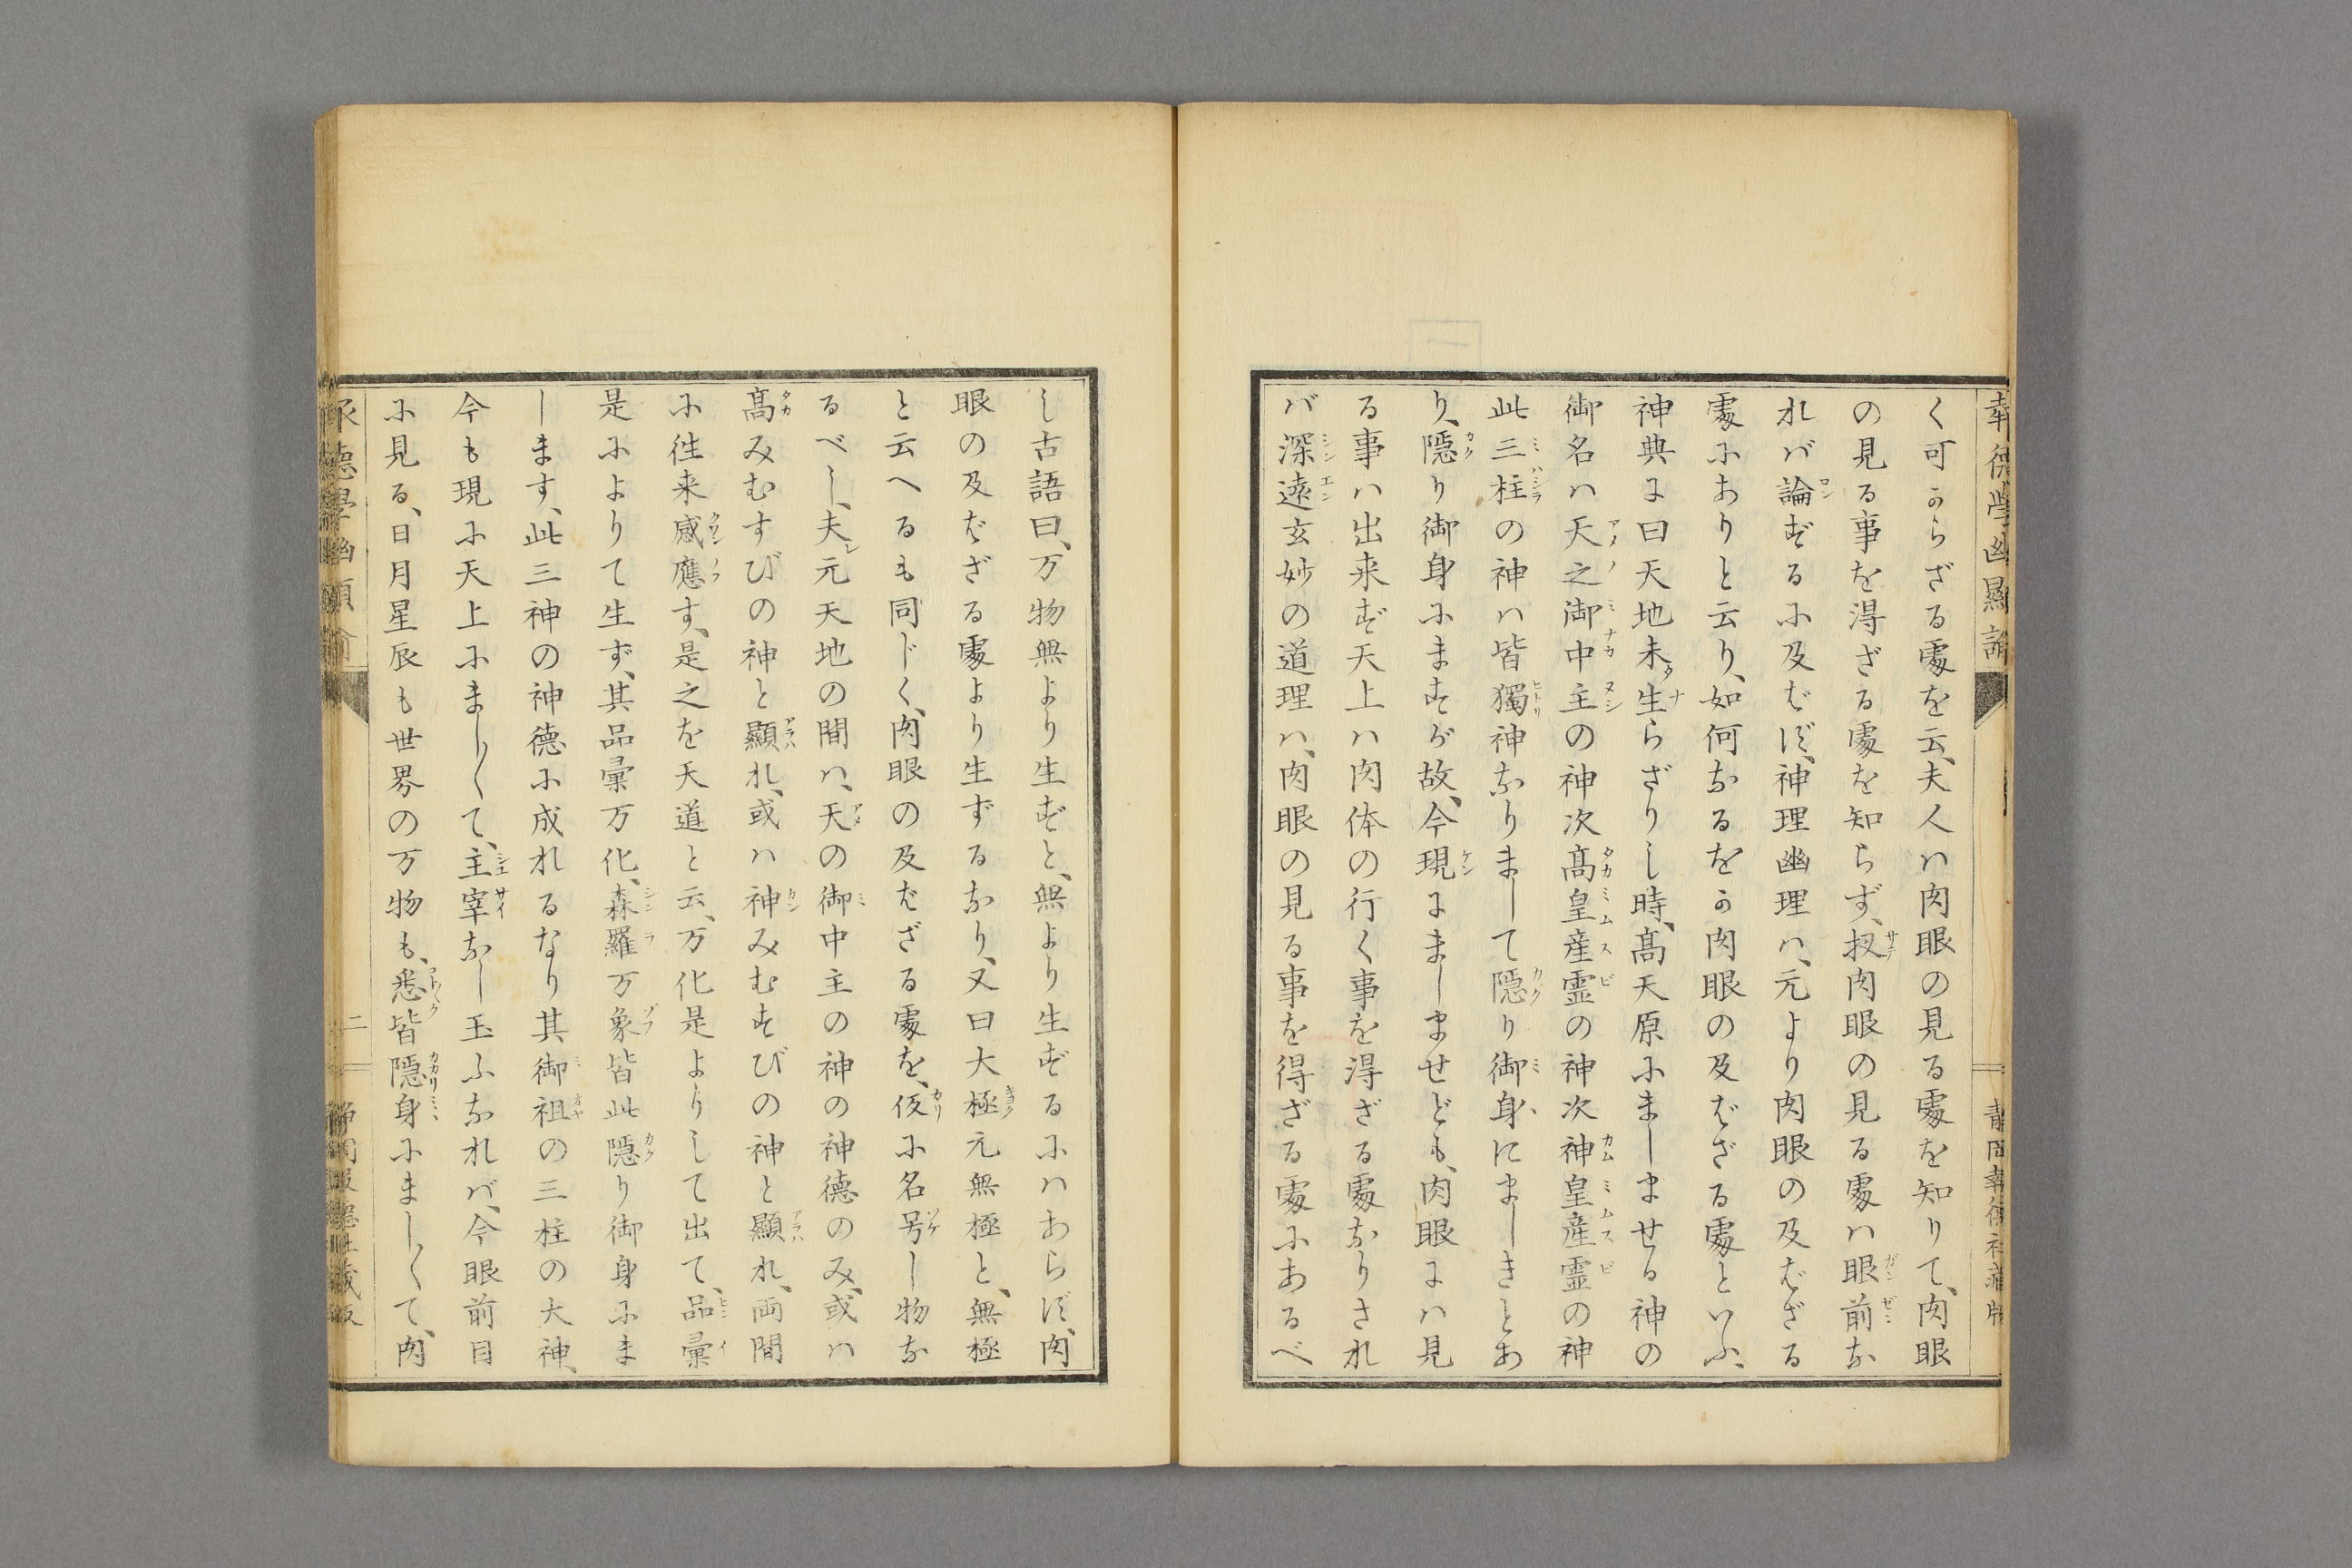 く可からざる處を云、夫人ハ肉眼の見る處を知りて、肉眼
の見る事を得ざる處を知らず、扨肉眼の見る處ハ眼前な
れバ論ずるに及ばず、神理幽理ハ、元より肉眼の及ばざる
處にありと云り、如何なるをか肉眼の及ばざる處といふ、
神典に曰天地未生らざりし時、髙天原にましませる神の
御名ハ天之御中主の神次髙皇産霊の神次神皇産霊の神
此三柱の神ハ皆獨神なりまして隠り御身にましきとあ
り、隠り御身にますが故、今現にましませども、肉眼にハ見
る事ハ出来ず天上ハ肉体の行く事を得ざる處なりされ
バ深遠玄妙の道理ハ、肉眼の見る事を得ざる處にあるべ
し古語曰、万物無より生ずと、無より生ずるにハあらず、肉
眼の及ばざる處より生ずるなり、又曰大極元無極と、無極
と云へるも同じく、肉眼の及ばざる處を、仮に名号し物な
るべし、夫元天地の間ハ、天の御中主の神の神德のみ、或ハ
髙みむすびの神と顯れ、或ハ神みむすびの神と顯れ、両間
に往来感應す、是之を天道と云、万化是よりして出て、品彙
是によりて生ず、其品彙万化、森羅万象皆此隠り御身にま
します、此三神の神德に成れるなり其御祖の三柱の大神、
今も現に天上にまし〱て、主宰なし玉ふなれバ、今眼前目
に見る、日月星辰も世界の万物も、悉皆隠身にまし〱て、肉
二